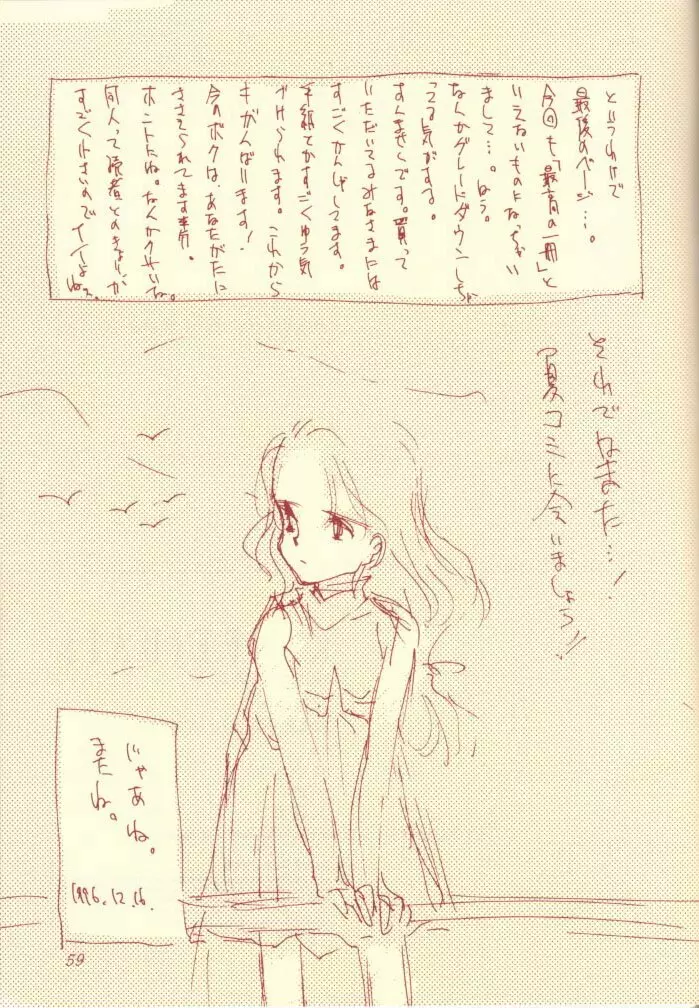 というわけで
最後のページ…。
今回も「最高の一冊」と
いえないものになっちゃい
まして…。はう。
なんかグレードダウンしちゃ
ってる気がする。
すんませんです。買って
いただいてるみなさまには
すごくかんしゃしてます。
手紙とかすごくゆう気
づけられます。これから
もがんばります！
今のボクは、あなたがたに
ささえられてます
ホントだね。なんかクサいな。
同人って読者とのきょりが
すごく小さいのでイイよねェ。
それではまた…！
夏コミに会いましょう！！
じゃあね。
またね。
1996.12.16.
59